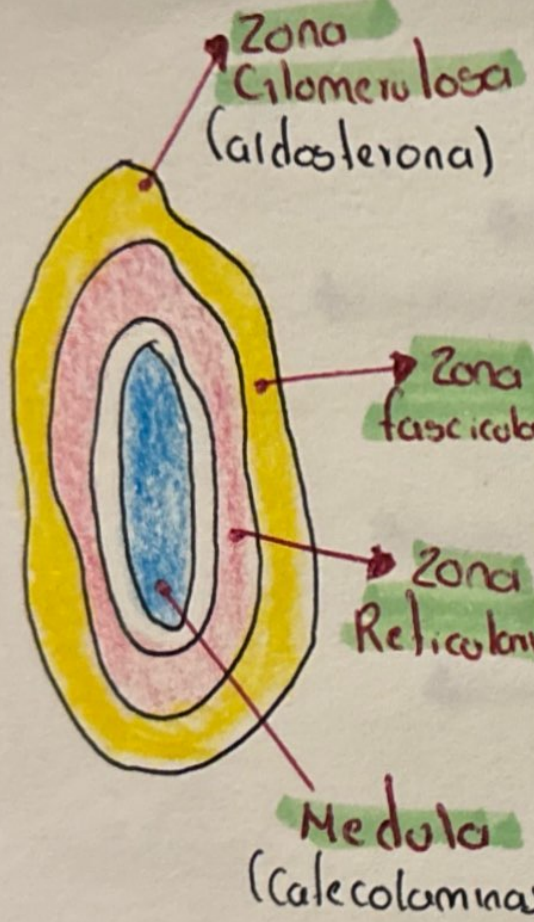 Zona
Glomerulosa
(aldosterona)
Zona
fascicul
Zona
Reticular
Medula
(Catecolamina